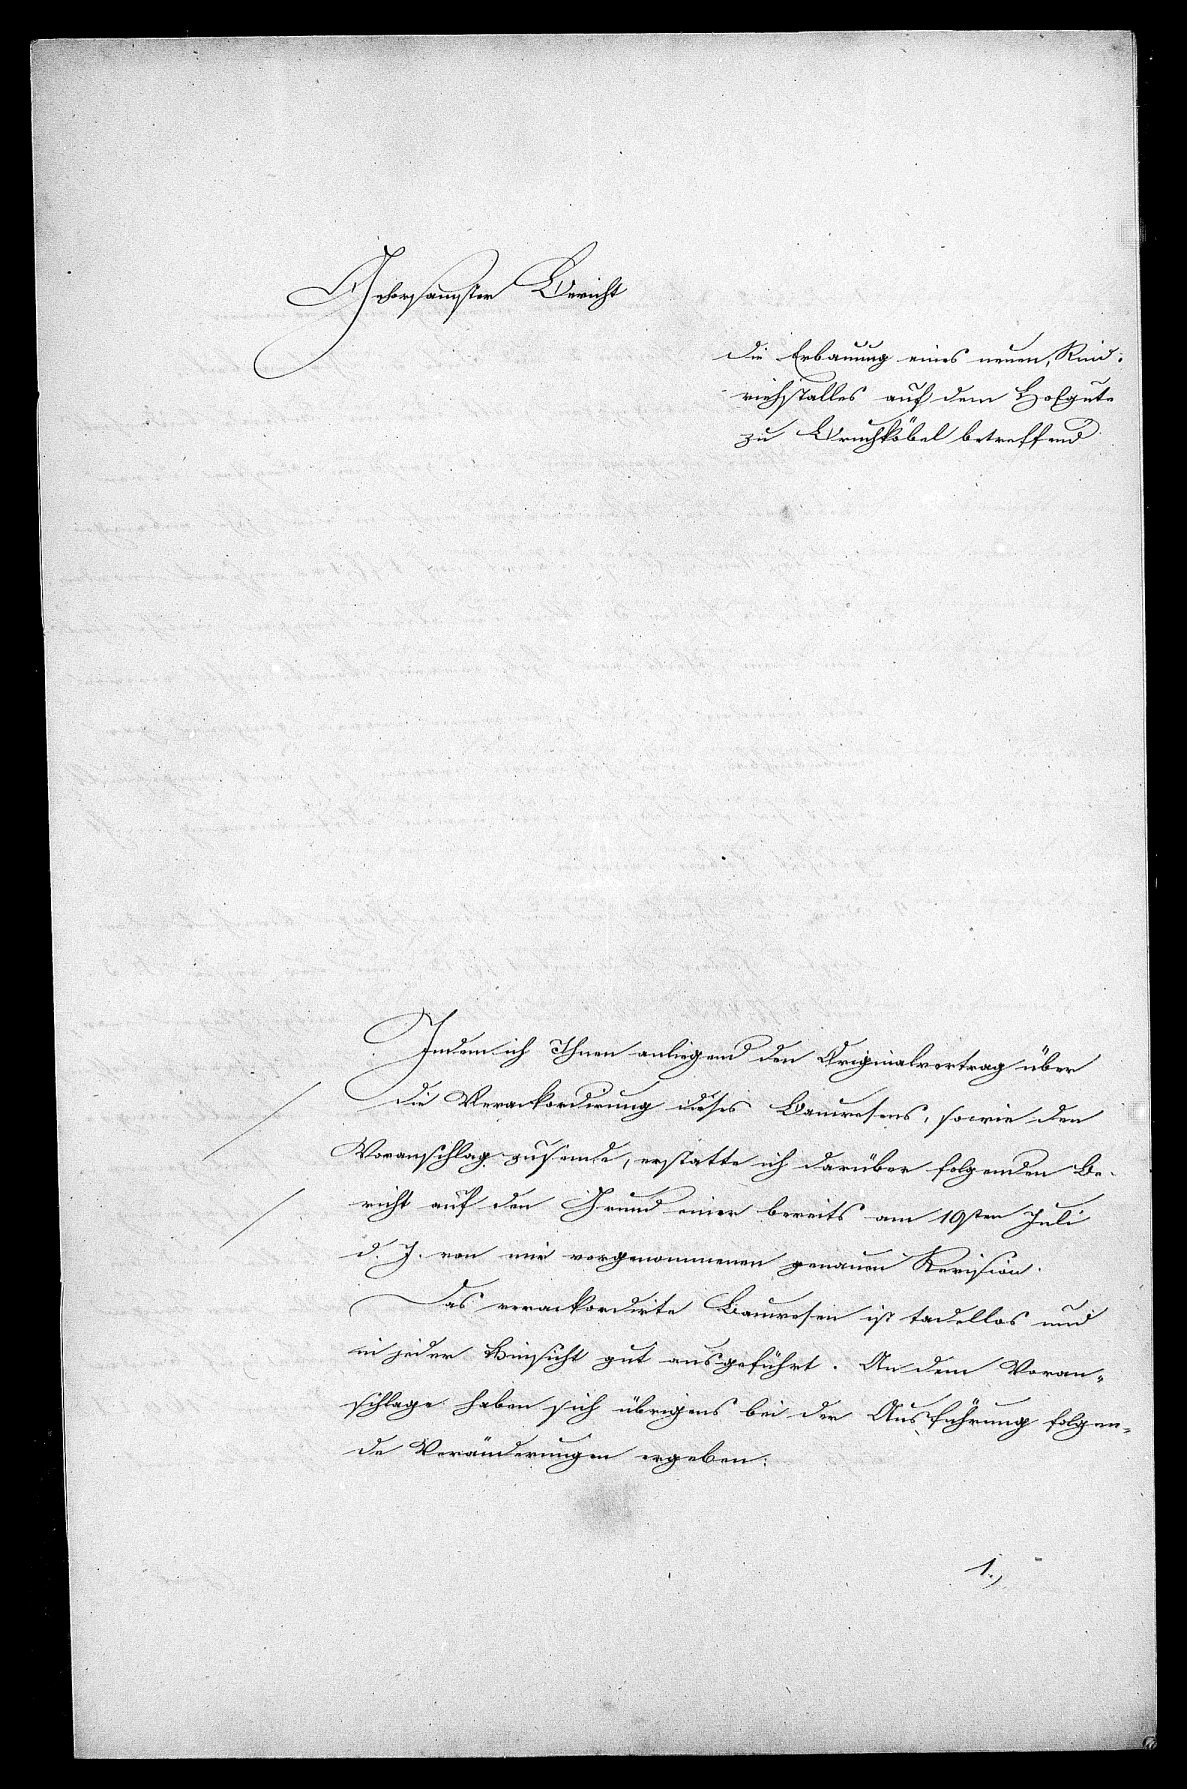 Gehorsamster Bericht
die Erbauung eines neuen Rind-
viehstalles auf dem Hofgute
zu Bruchköbel betreffend
Indem ich Ihnen anliegend den Originalvertrag über
die Verackordirung dieses Bauwesens, sowie den
Voranschlag zusende, erstatte ich darüber folgenden Be-
richt auf den Grund einer bereits am 19ten Juli
d. J. von mir vorgenommenen genauen Revision.
Das verackordirte Bauwesen ist tadellos und
in jeder Hinsicht gut ausgeführt. An dem Voran-
schlage haben sich übrigens bei der Ausführung folgen-
de Veränderungen ergeben:
1.,